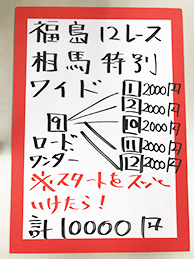 福島12レース
相馬特別
ワイド
1 2000円
2 2000円
9 10 2000円
11 2000円
ロード
ワンダー 12 2000円
※スタートをスンと
いけたら!
計10000円